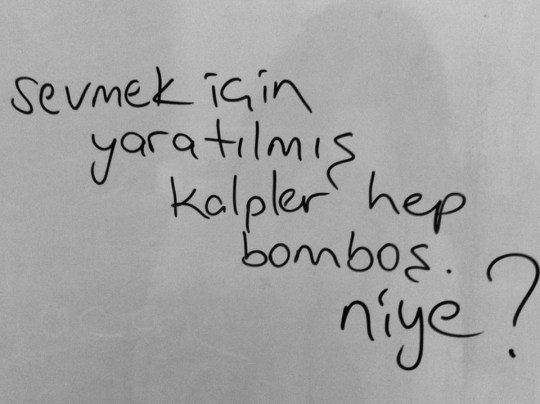 sevmek için
yaratılmış
kalpler hep
bomboş.
niye?